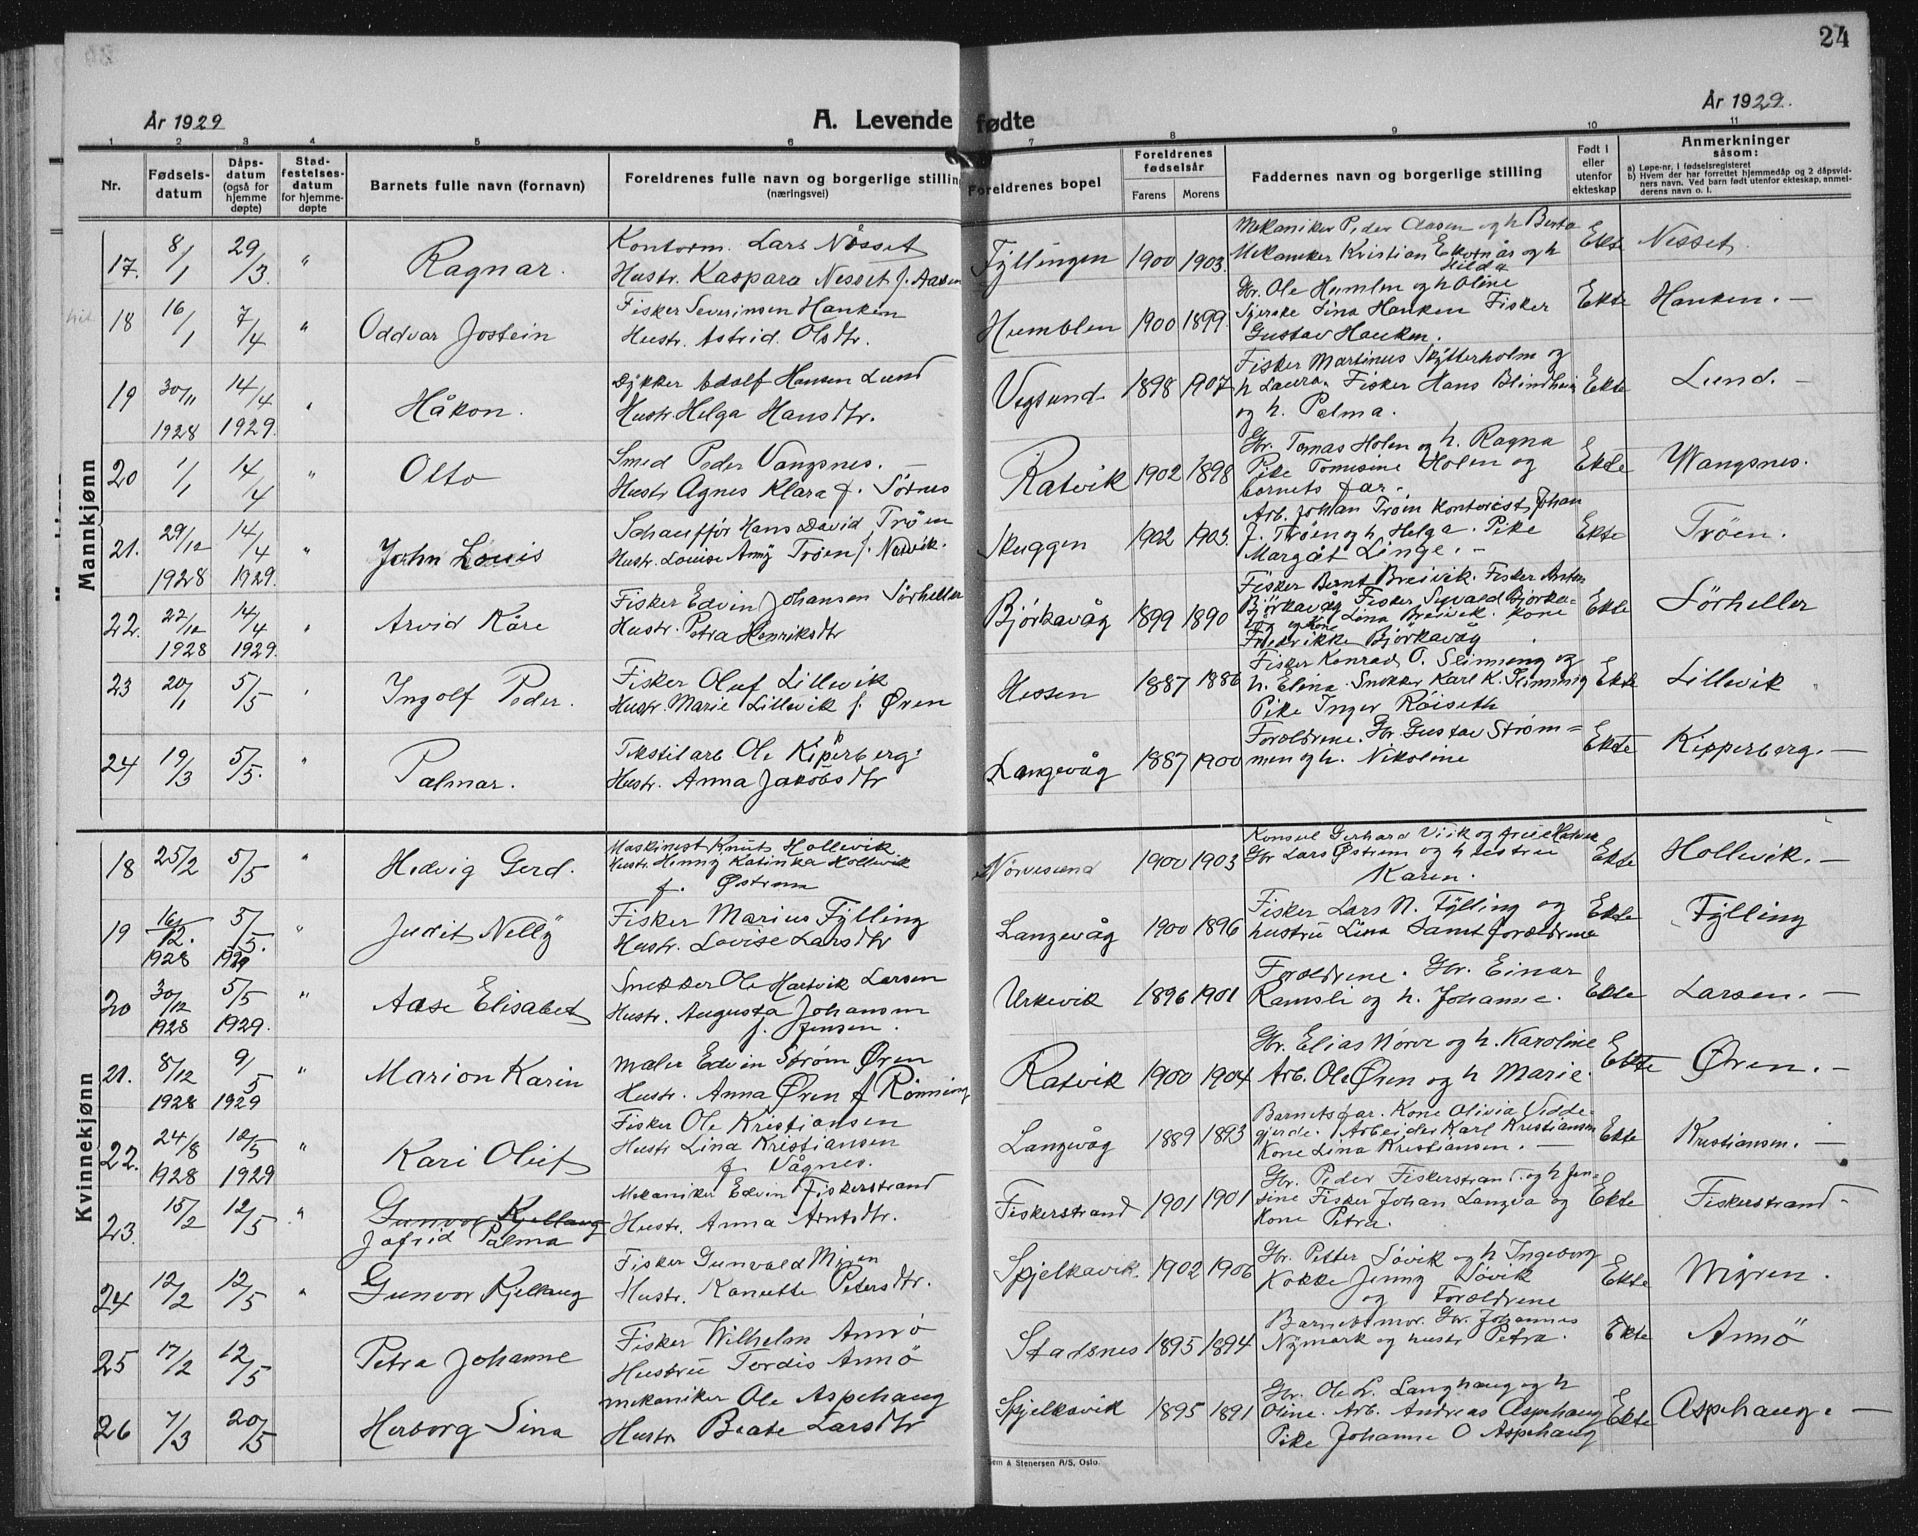 24
År 1929
A. Levende fødte
År 1929.
1 2 3 4 5 6 7 8 9 10 11
Nr.
Fødsels-
datum
Dåps-
datum
(også for
hjemme
døpte)
Stad-
festelses-
datum
for hjemme-
døpte
Barnets fulle navn (fornavn)
Foreldrenes fulle navn og borgerlige stilling
(næringsvei)
Foreldrenes bopel
Foreldrenes
fødselsår
Farens Morens
Faddernes navn og borgerlige stilling
Født i
eller
utenfor
ekteskap
Anmerkninger
såsom:
a) Løpe-nr. i fødselsregisteret
b) Hvem der har forrettet hjemmedåp og 2 dåpsvid-
ners navn. Ved barn født utenfor ekteskap, anmel-
derens navn o. l.
Mannkjønn
17. 8/1 29/3. " Ragnar.
Kontorm. Lars Nosset
Hustr. Kaspara Nesset f. Aasen
Fyllingen 1900 1903.
Mekaniker Peder Aasen og h Berta
Mekaniker Kristian Ekornås og h
Hilda
Ekte Nesset.
18 16/1 7/4 " Oddvar Jostein
Fisker Severinsen Hanken
Hustr. Astrid Olsdtr.
Humblen 1900 1899.
Gbr. Ole Humlen og h Oline
Sina Hanken Fisker
Gustav Hanken.
Ekte Hanken. —
19 30/11 1928 14/4 1929. " Håkon.
Dykker Adolf Hansen Lund
Hustr. Helga Hansdtr.
Vegsund 1898 1907
Fisker Martinus Skytterholm og
h Laura. Fisker Hans Blindheim
og h. Palma.
Ekte Lund. —
20 1/1 14/4 " Otto
Smed Peder Vangsnes. —
Hustr Agnes Klara f. Sørnes
Ratvik 1902 1898
Gbr. Tomas Holen og h. Ragna
Pike Tomisine Holen og
barnets far.
Ekte Wangsnes.
21. 29/12 1928 14/4 1929. " John Louis
Schauffør Hans David Trøen
Hustr. Louise Anny Trøen f. Nesvik.
Skuggen 1902 1903.
Arb. Johan Trøen Kontorist Johan
J. Trøen og h Helga. Pike
Margåt Linge. —
Ekte Trøen.
22. 22/12 1928 14/4 1929. " Arvid Kåre
Fisker Edvin Johansen Sørheller
Hustr. Petra Henriksdtr
Bjørkavåg 1899 1890
Fisker Bernt Breivik. Fisker Anton
Bjørkavåg Fisker Syvald Bjørka-
våg og Kone Lina Breivik. Kone
Fredrikke Bjørkavåg
Ekte Sörheller
23 20/1 5/5 " Ingolf Peder.
Fisker Oluf Lillevik
Hustr. Marie Lillevik f. Øren
Hessen 1887 1886
Fisker Konrad O. Slinning og
h. Elina. Snekker Karl K. Slinning
Pike Inger Röiseth
Ekte Lillevik
24 19/3 5/5. " Palmar.
Tekstilarb Ole Kipperberg
Hustr. Anna Jakobsdtr
Langevåg 1887 1900
Foreldrene. Gbr. Gustav Strøm-
men og h. Nikoline
Ekte Kipperberg. —
Kvinnekjønn
18 25/2 5/5 " Hedvig Gerd.
Maskinist Knut Hollevik
Hustr. Henny Katinka Hollevik
f. Østrem
Nørvesund 1900 1903
Konsul Gerhard Viik og frue
Gbr Lars Østrem og hustru
Karen.
Ekte Hollevik. —
19 16/12. 1928 5/5. 1929 " Judit Nelly
Fisker Marius Fylling
Hustr. Lovise Larsdtr
Langevåg 1900 1896
Fisker Lars N. Fylling og
hustru Lina Samt foreldrene
Ekte Fylling
20 30/12 1928 5/5 1929. " Aase Elisabet
Snekker Ole Hartvik Larsen
Hustr. Augusta Johansen
f. Jensen.
Urkevik 1896 1901
Foreldrene. Gbr. Einar
Ramsli og h. Johanne.
Ekte Larsen. —
21. 8/12 1928 9/5 1929 " Marion Karin
Maler Edvin Strøm Øren
Hustr. Anna Øren f Rønning
Ratvik 1900 1904
Gbr. Elias Nørve og h. Karoline
Arb. Ole Øren og h Marie.
Ekte Øren. —
22. 24/8 1928 12/5 1929 " Kari Oluf
Fisker Ole Kristiansen
Hustr Lina Kristiansen
f Vågnes.
Langevåg 1889 1893
Barnets far. Kone Olivia Vidde-
gjerde. Arbeider Karl Kristiansen
Kone Lina Kristiansen. —
Ekte Kristiansen. —
23. 15/2 12/5 " Gunvor Kjellaug
Jofrid Palma
Mekaniker Edvin Fiskerstrand
Hustr. Anna Arntsdtr.
Fiskerstrand 1901 1901
Gbr. Peder Fiskerstrand og h Jen-
sine Fisker Johan Langva og
Kone Petra.
Ekte Fiskerstrand —
24 12/2 12/5 " Gunvor Kjellaug
Fisker Gunvald Myren
Hustr. Kanutte Petersdtr.
Spjelkavik. 1902 1906
Gbr. Petter Søvik og h Ingeborg
Kokke Jenny Søvik
og Foreldrene
Ekte Myren.
25 17/2 12/5 Petra Johanne
Fisker Wilhelm Annö
Hustru Tordis Annö
Stadsnes 1895 1894
Barnets mor. Gbr. Johannes
Nymark og hustr Petra.
Ekte Annö
26 7/3 20/5 Herborg Sina
Mekaniker Ole Aspehaug
Hustr Beate Larsdtr
Spjelkavik 1895 1891
Gbr. Ole L. Langhaug og h
Oline. Arb. Andreas Aspehaug
Pike Johanne O Aspehaug
Ekte Aspehaug. —
Sem & Stenersen A/S, Oslo.